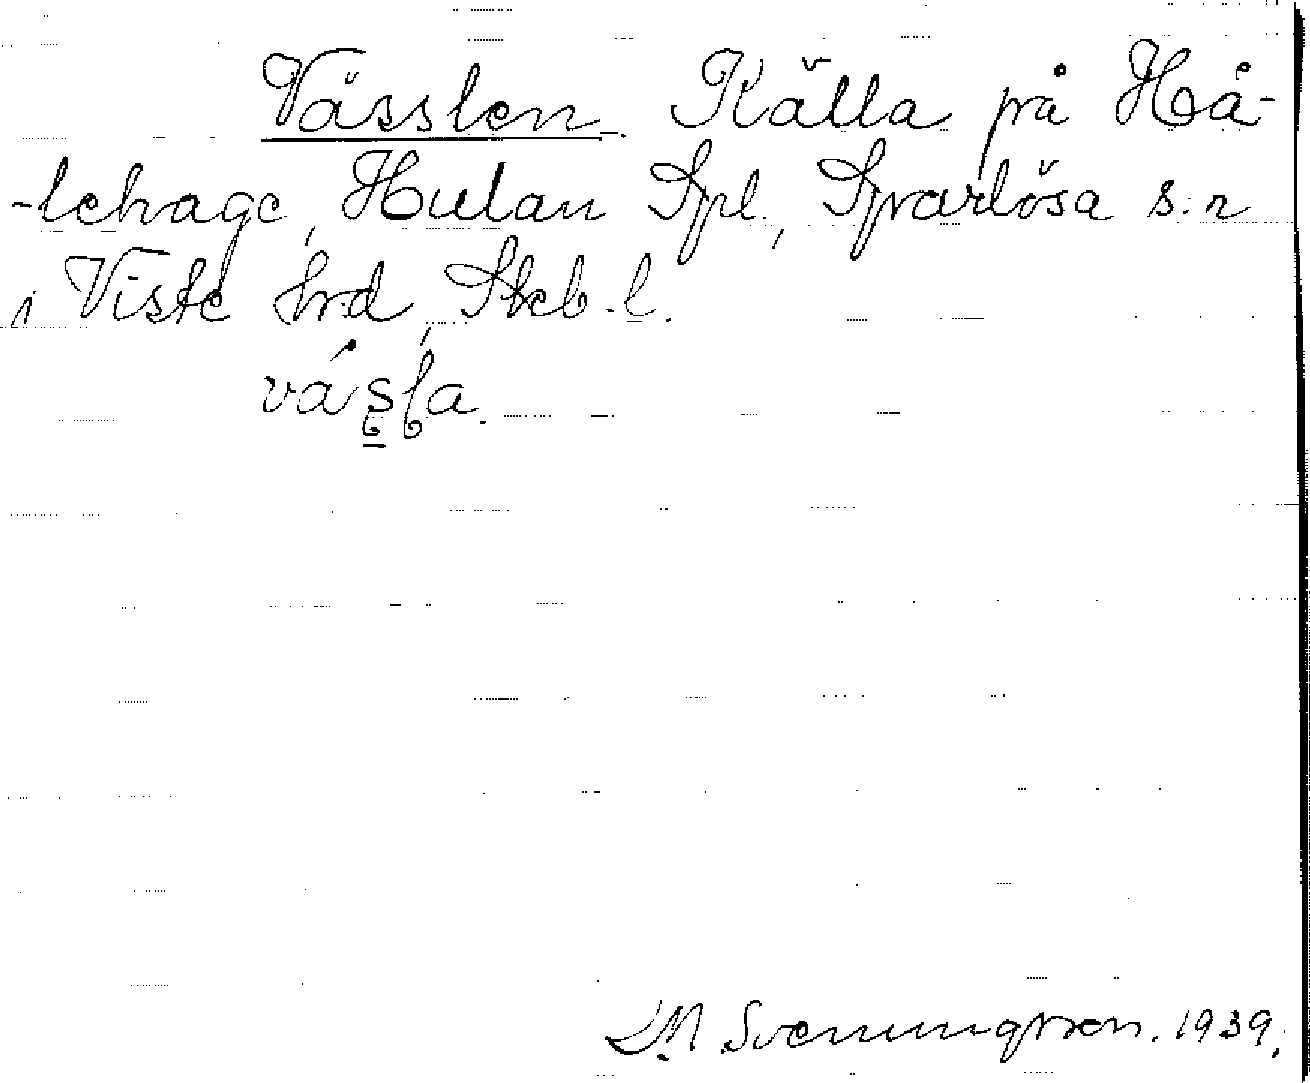 Vässlen. Källa på Hå-
-lehage, Hulan Spl., Sparlösa s:n
i Viste hrd, Skab.l.
vásla.
LM Svenungsson. 1939.